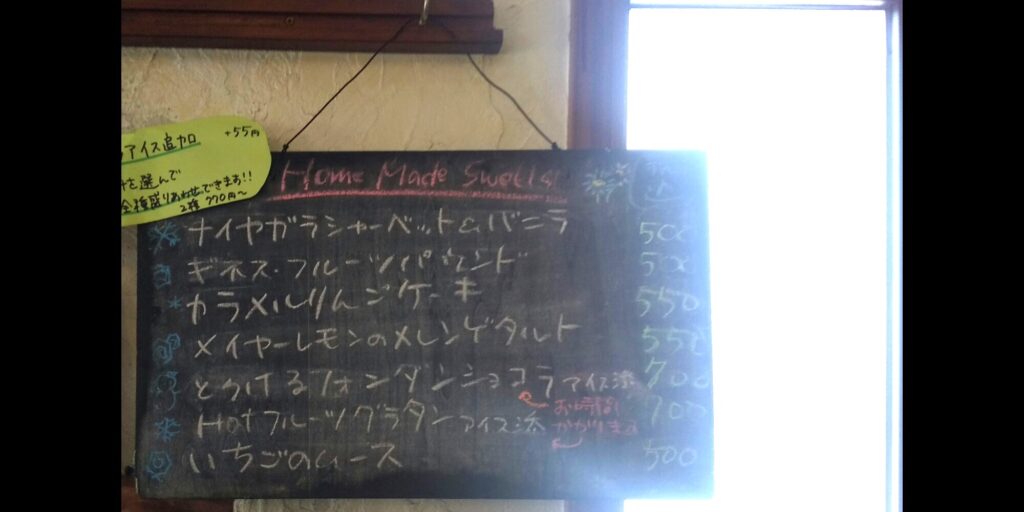 アイス追加 +55円
を選んで
全種盛りあわせできます!!
2種 770円~
Home Made Sweets
税込
ナイヤガラシャーベットとバニラ 500
ギネス・フルーツパウンド 500
カラメルりんごケーキ 550
メイヤーレモンのメレンゲタルト 550
とろけるフォンダンショコラ アイス添 700
お時間
かかります
Hotフルーツグラタン アイス添 700
いちごのムース 500